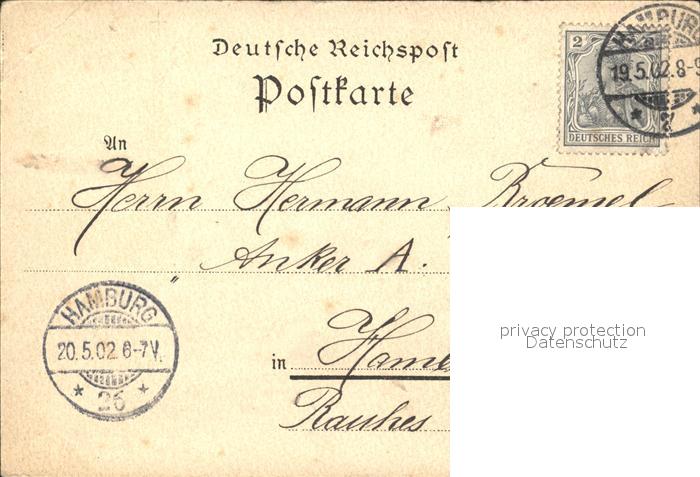 Deutsche Reichspost
Postkarte
2
DEUTSCHES REICH
HAMBURG
19.5.02.8-9
* 2 *
An
Herrn Hermann Broemel
Anker A.
"
HAMBURG
20.5.02.6-7V.
* 26 *
in
Rauhes
privacy protection
Datenschutz